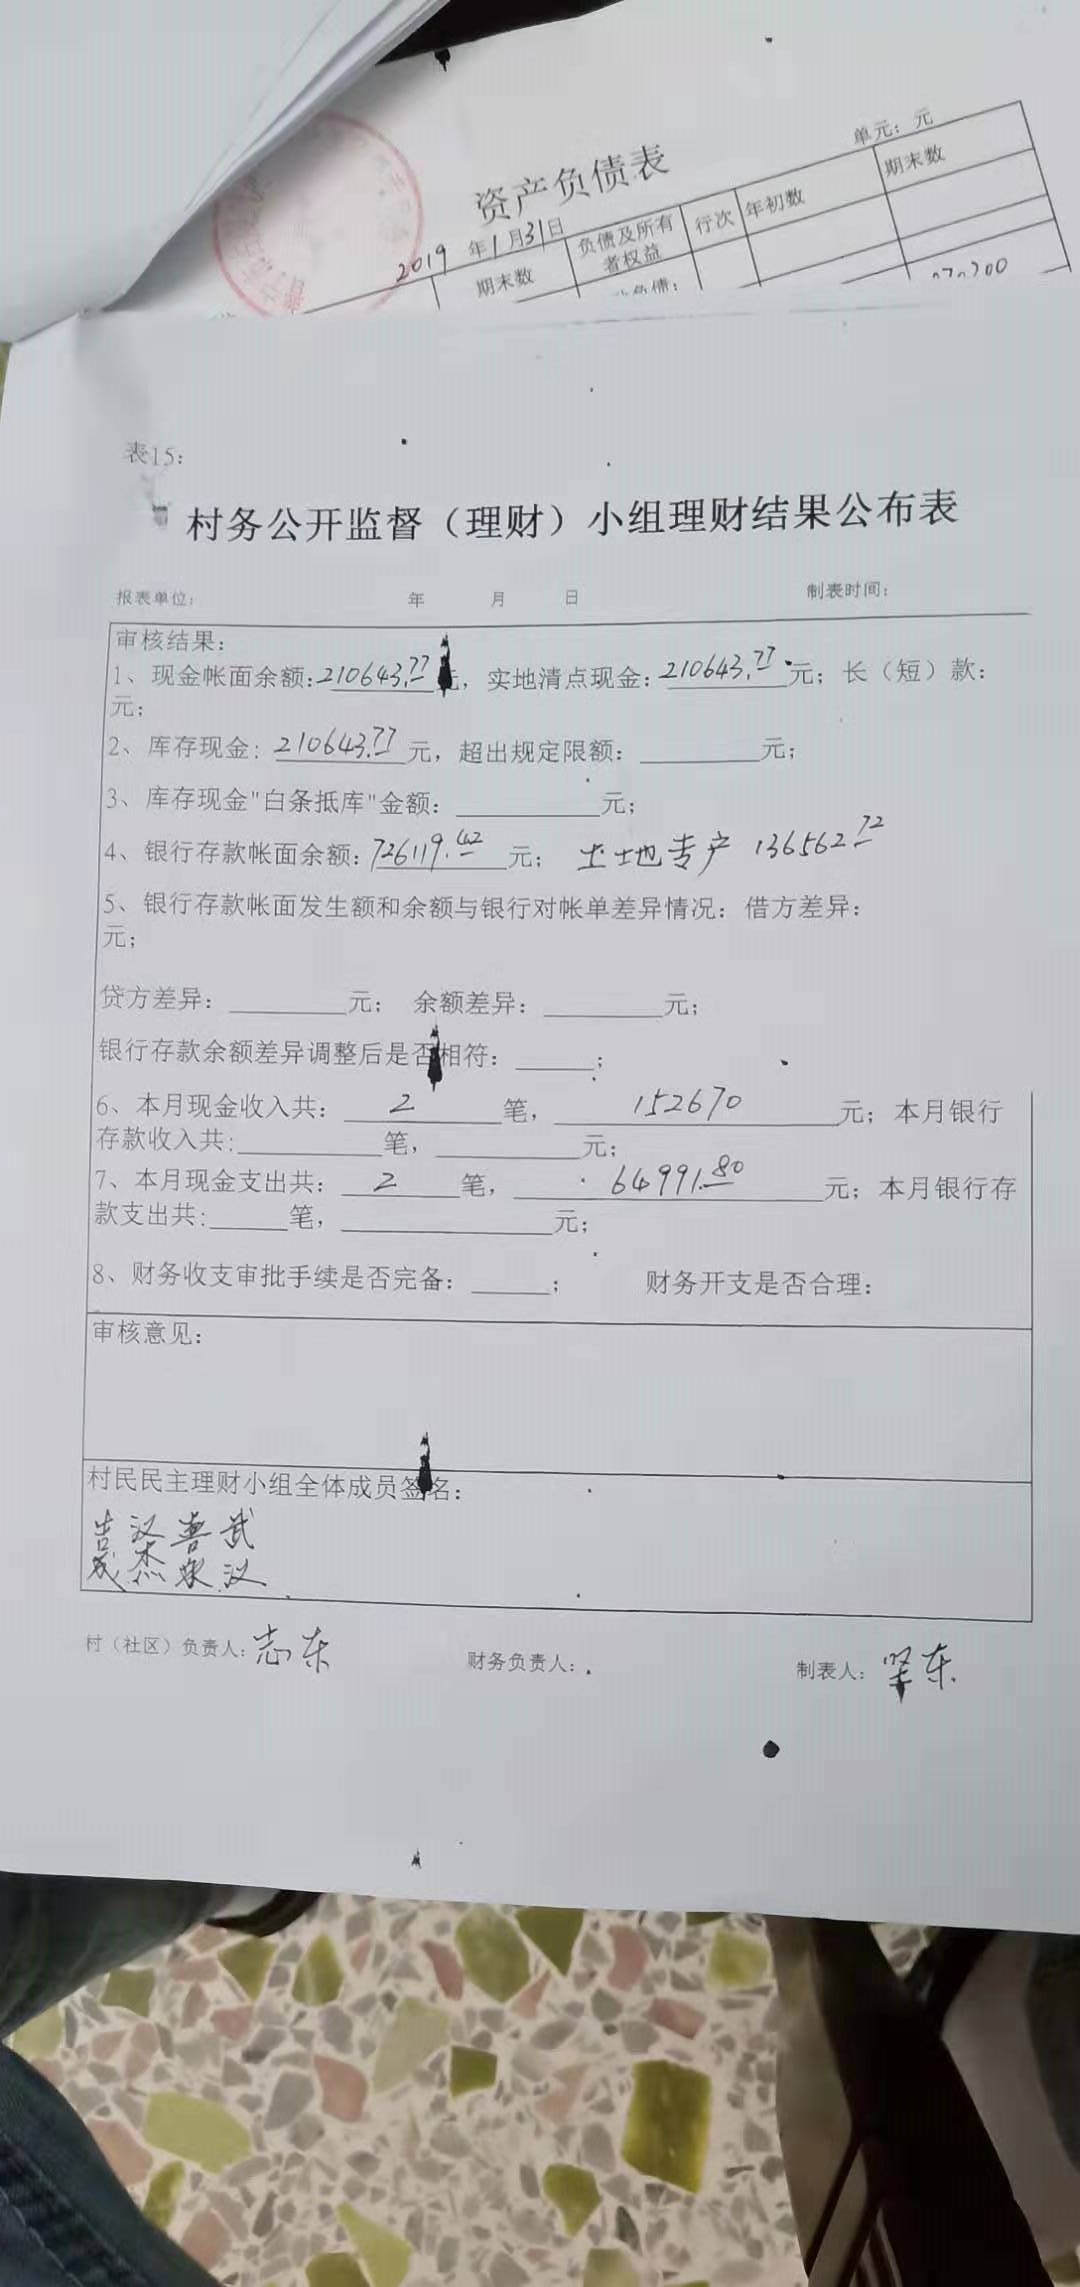 资产负债表
单元：元
2019年1月31日
期末数 负债及所有者权益 行次 年初数 期末数
表15：
村务公开监督（理财）小组理财结果公布表
报表单位： 年 月 日 制表时间：
审核结果：
1、现金帐面余额：210643.77元，实地清点现金：210643.77元；长（短）款：
元；
2、库存现金：210643.77元，超出规定限额：元；
3、库存现金"白条抵库"金额：元；
4、银行存款帐面余额：726119.42元； 土地专户 136562.72
5、银行存款帐面发生额和余额与银行对帐单差异情况：借方差异：
元；
贷方差异：元； 余额差异：元；
银行存款余额差异调整后是否相符：；
6、本月现金收入共：2笔，152670元；本月银行
存款收入共：笔，元；
7、本月现金支出共：2笔，64991.80元；本月银行存
款支出共：笔，元；
8、财务收支审批手续是否完备：； 财务开支是否合理：
审核意见：
村民民主理财小组全体成员签名：
村（社区）负责人：志东 财务负责人： 制表人：坚东